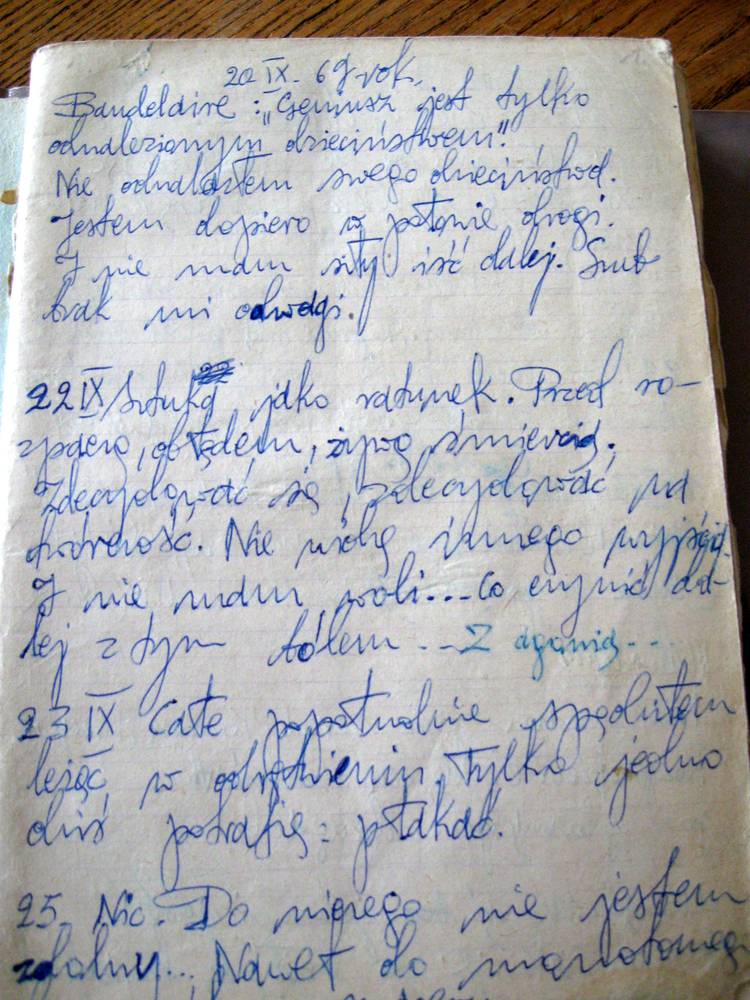 20 IX. 69 rok.
Baudelaire: „Geniusz jest tylko
odnalezionym dzieciństwem".
Nie odnalazłem swego dzieciństwa.
Jestem dopiero w połowie drogi.
I nie mam siły iść dalej. Lub
brak mi odwagi.
22 IX Sztuka jako ratunek. Przed ro-
zpaczą, obłędem, żywą śmiercią.
Zdecydować się, zdecydować na
twórczość. Nie widzę innego wyjścia.
I nie mam woli... Co czynić da-
lej z tym bólem... Z agonią...
23 IX Całe popołudnie spędziłem
leżąc w odrętwieniu. Tylko jedno
dziś potrafię: płakać.
25. Nic. Do niczego nie jestem
zdolny... Nawet do